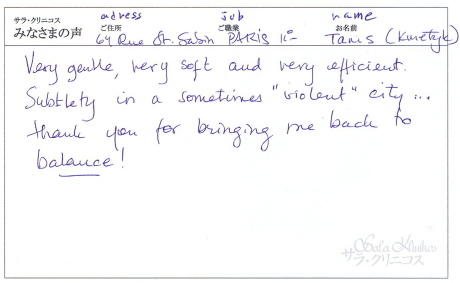 adress job name
サラ・クリニコス
みなさまの声 ご住所 ご職業 お名前
64 Rue St. Sabin PARIS 11e Tanis
Very gentle, very soft and very efficient.
Subtlety in a sometimes "violent" city...
thank you for bringing me back to
balance!
Sala Klinikos
サラ・クリニコス